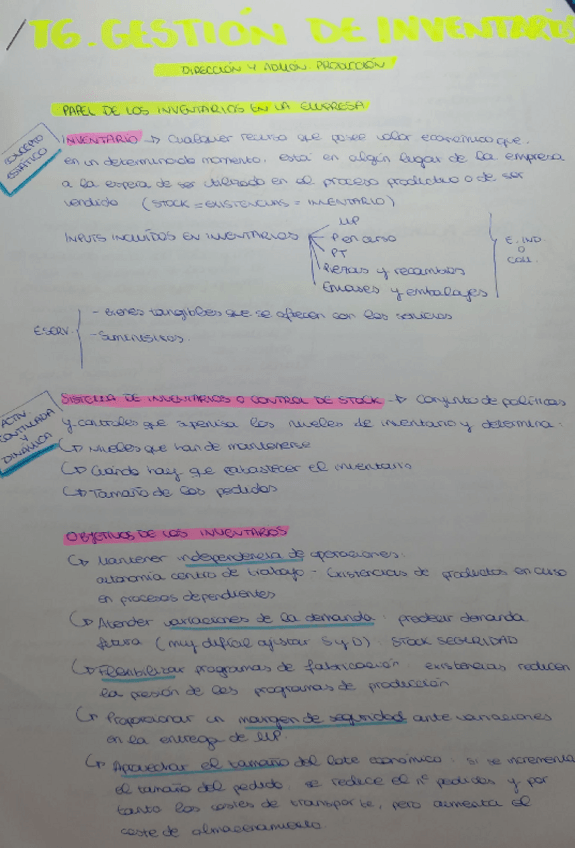 T6. GESTIÓN DE INVENTARIOS
DIRECCIÓN Y ADMÓN. PRODUCCIÓN
PAPEL DE LOS INVENTARIOS EN LA EMPRESA
CONCEPTO
ESTÁTICO
INVENTARIO → Cualquier recurso que posee valor económico que,
en un determinado momento, está en algún lugar de la empresa
a la espera de ser utilizado en el proceso productivo o de ser
vendido (STOCK = EXISTENCIAS = INVENTARIO)
INPUTS INCLUÍDOS EN INVENTARIOS
MP
P en curso
PT
Piezas y recambios
Envases y embalajes
E. IND.
O
COM.
E SERV.
- Bienes tangibles que se ofrecen con los servicios
- Suministros.
ACTIV.
CONTINUADA
Y
DINÁMICA
SISTEMA DE INVENTARIOS O CONTROL DE STOCK → Conjunto de políticas
y controles que supervisa los niveles de inventario y determina:
↳ Niveles que han de mantenerse
↳ Cuándo hay que reabastecer el inventario
↳ Tamaño de los pedidos
OBJETIVOS DE LOS INVENTARIOS
↳ Mantener independencia de operaciones:
autonomía centro de trabajo - Existencias de productos en curso
en procesos dependientes
↳ Atender variaciones de la demanda: predecir demanda
futura (muy difícil ajustar S y D). STOCK SEGURIDAD
↳ Flexibilizar programas de fabricación: existencias reducen
la presión de los programas de producción
↳ Proporcionar un margen de seguridad ante variaciones
en la entrega de MP
↳ Aprovechar el tamaño del lote económico: si se incrementa
el tamaño del pedido, se reduce el nº pedidos y por
tanto los costes de transporte, pero aumenta el
coste de almacenamiento.